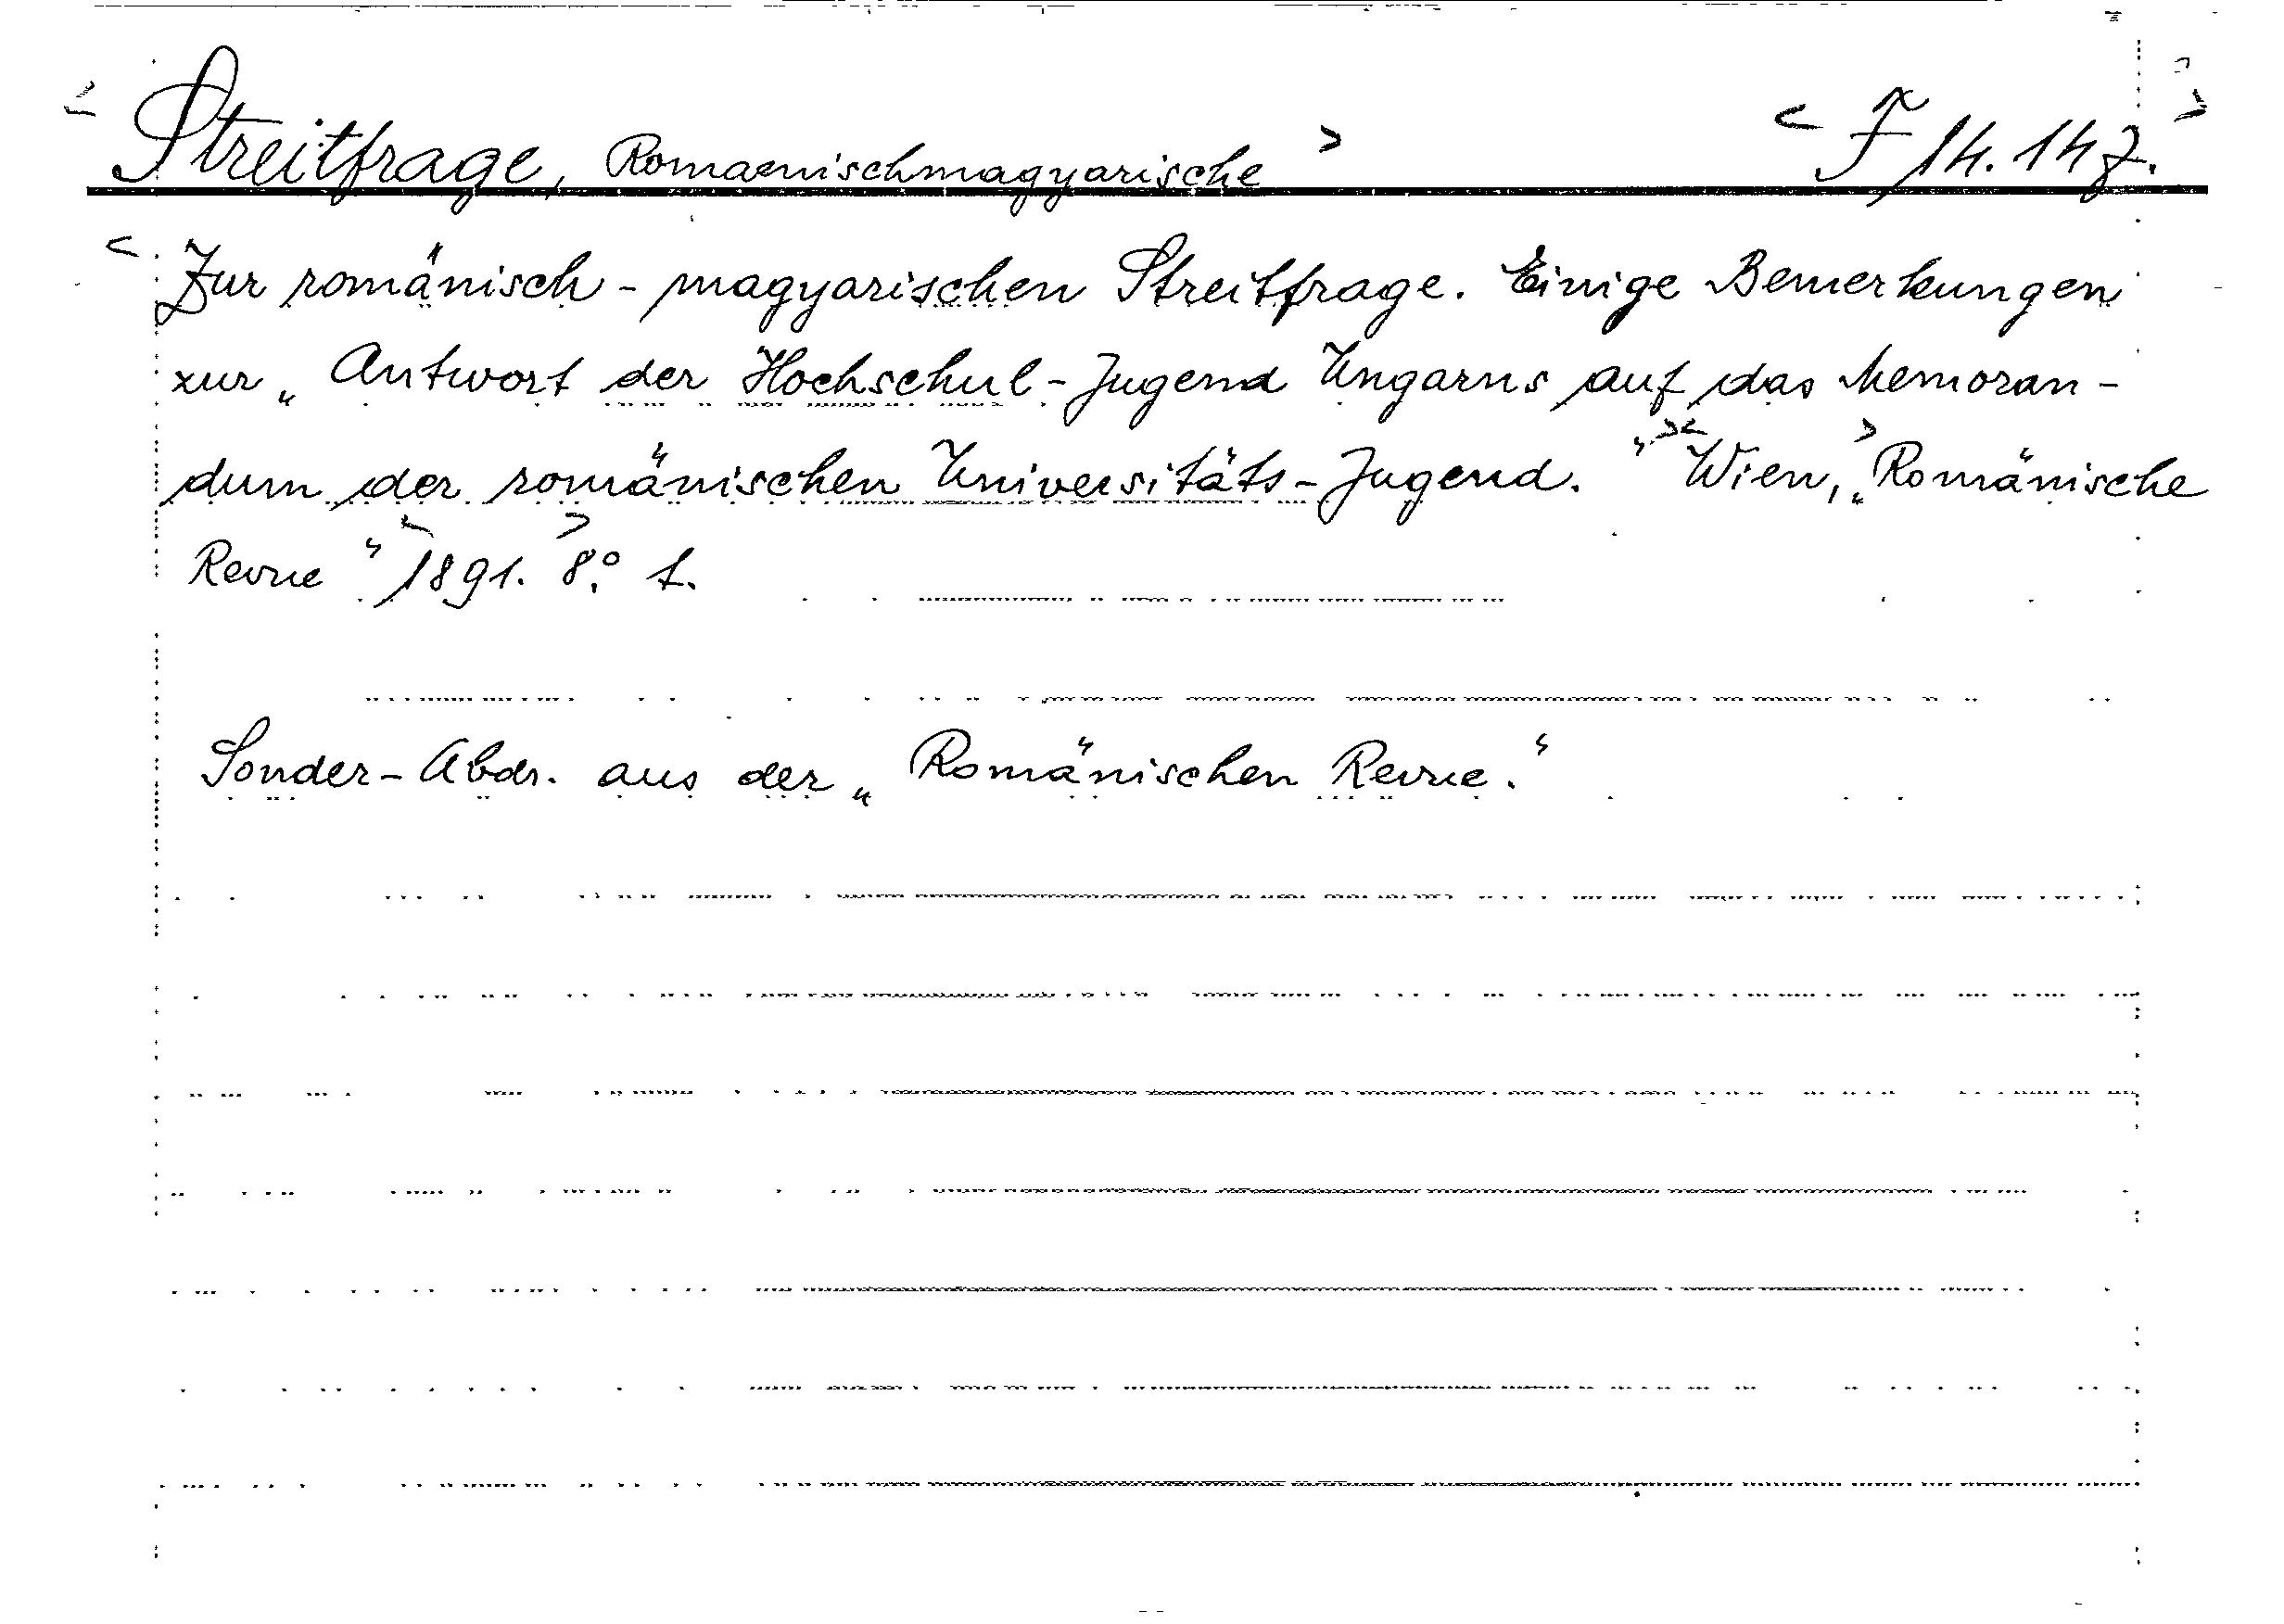 < Streitfrage, Romaenischmagyarische > < F 14.147. >
< Zur romänisch - magyarischen Streitfrage. Einige Bemerkungen
zur „Antwort der Hochschul-Jugend Ungarns auf das Memoran-
dum der romänischen Universitäts-Jugend.“ >< Wien, > „Romänische
Revue“ < 1891. > 8.° 1.
Sonder-Abdr. aus der „Romänischen Revue.“